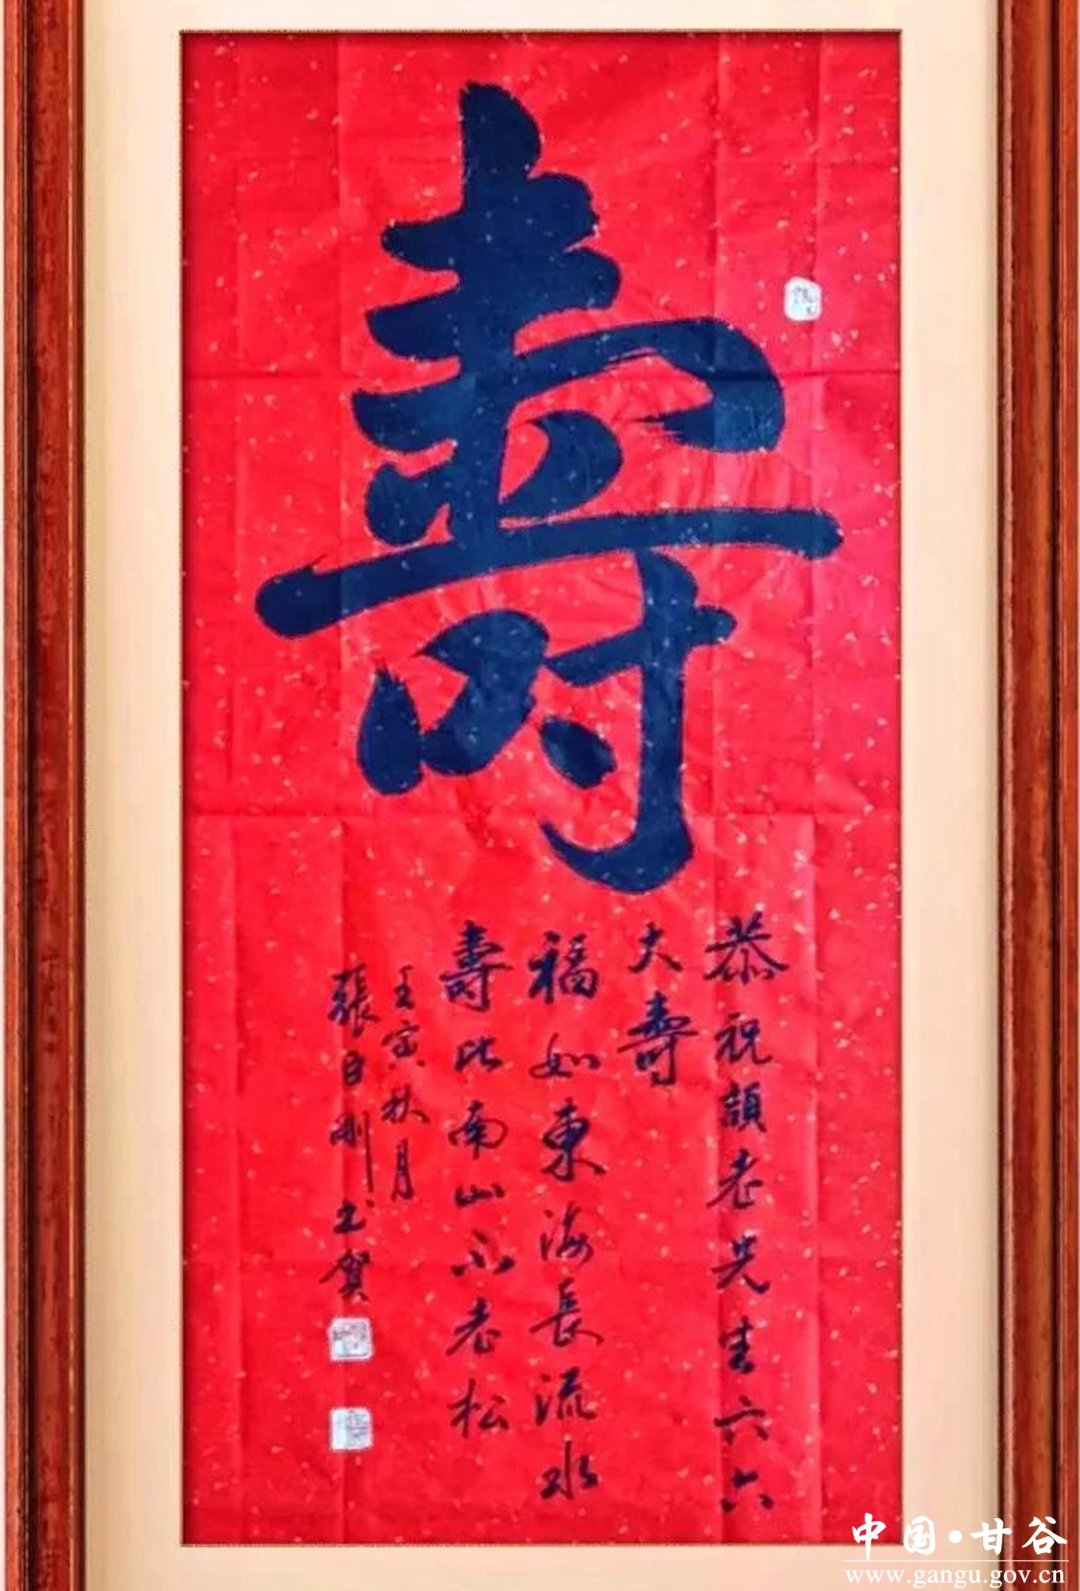 壽
恭祝頡老先生六六
大壽
福如東海長流水
壽比南山不老松
壬寅秋月
張自刚书賀
中国·甘谷
www.gangu.gov.cn